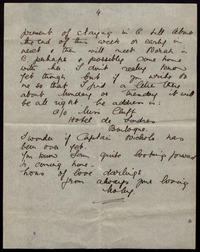 4
present of staying in B till about
the end of this week or early in
next & then will meet Norah in
B perhaps & possibly come home
with her. I don't really know
yet though but if you write to
me so that I find a letter there
about Sunday or Monday it will
be all right. The address is:
c/o Miss
Hotel de Londres
Boulogne.
I wonder if Captain Nichols has
been over yet.
You know I am quite looking forward
to coming home
home of love darling
from always your loving